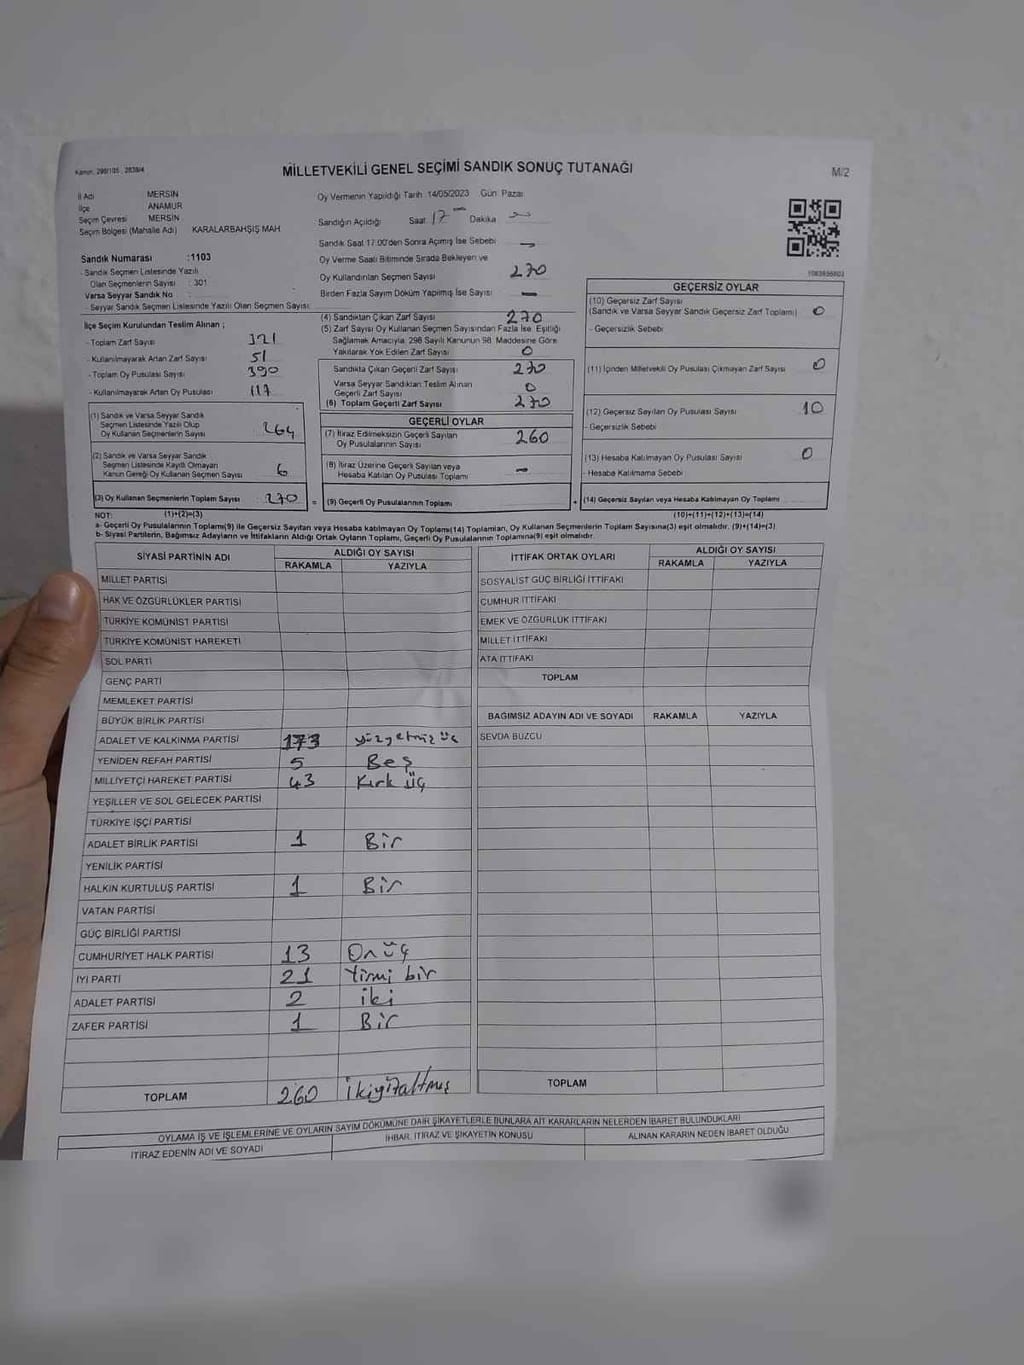 Kanun: 298/105 , 2839/4
MİLLETVEKİLİ GENEL SEÇİMİ SANDIK SONUÇ TUTANAĞI
M/2
İl Adı MERSİN
İlçe ANAMUR
Seçim Çevresi MERSİN
Seçim Bölgesi (Mahalle Adı) KARALARBAHŞİŞ MAH
Sandık Numarası :1103
- Sandık Seçmen Listesinde Yazılı
Olan Seçmenlerin Sayısı : 301
Varsa Seyyar Sandık No :
- Seyyar Sandık Seçmen Listesinde Yazılı Olan Seçmen Sayısı:
İlçe Seçim Kurulundan Teslim Alınan ;
- Toplam Zarf Sayısı 321
- Kullanılmayarak Artan Zarf Sayısı 51
- Toplam Oy Pusulası Sayısı 390
- Kullanılmayarak Artan Oy Pusulası 117
(1) Sandık ve Varsa Seyyar Sandık
Seçmen Listesinde Yazılı Olup
Oy Kullanan Seçmenlerin Sayısı 264
(2) Sandık ve Varsa Seyyar Sandık
Seçmen Listesinde Kayıtlı Olmayan
Kanun Gereği Oy Kullanan Seçmen Sayısı 6
(3) Oy Kullanan Seçmenlerin Toplam Sayısı 270 =
(1)+(2)=(3)
Oy Vermenin Yapıldığı Tarih: 14/05/2023 Gün: Pazar
Sandığın Açıldığı Saat 17 Dakika
Sandık Saat 17:00'den Sonra Açılmış İse Sebebi -
Oy Verme Saati Bitiminde Sırada Bekleyen ve
Oy Kullandırılan Seçmen Sayısı 270
Birden Fazla Sayım Döküm Yapılmış İse Sayısı -
(4) Sandıktan Çıkan Zarf Sayısı 270
(5) Zarf Sayısı Oy Kullanan Seçmen Sayısından Fazla İse Eşitliği
Sağlamak Amacıyla, 298 Sayılı Kanunun 98. Maddesine Göre
Yakılarak Yok Edilen Zarf Sayısı 0
Sandıkta Çıkan Geçerli Zarf Sayısı 270
Varsa Seyyar Sandıktan Teslim Alınan
Geçerli Zarf Sayısı 0
(6) Toplam Geçerli Zarf Sayısı 270
GEÇERLİ OYLAR
(7) İtiraz Edilmeksizin Geçerli Sayılan
Oy Pusulalarının Sayısı 260
(8) İtiraz Üzerine Geçerli Sayılan veya
Hesaba Katılan Oy Pusulası Sayısı -
(9) Geçerli Oy Pusulalarının Toplamı +
GEÇERSİZ OYLAR
(10) Geçersiz Zarf Sayısı
(Sandık ve Varsa Seyyar Sandık Geçersiz Zarf Toplamı) 0
- Geçersizlik Sebebi
(11) İçinden Milletvekili Oy Pusulası Çıkmayan Zarf Sayısı 0
(12) Geçersiz Sayılan Oy Pusulası Sayısı 10
- Geçersizlik Sebebi
(13) Hesaba Katılmayan Oy Pusulası Sayısı 0
- Hesaba Katılmama Sebebi
(14) Geçersiz Sayılan veya Hesaba Katılmayan Oy Toplamı
(10)+(11)+(12)+(13)=(14)
NOT:
a- Geçerli Oy Pusulalarının Toplamı(9) ile Geçersiz Sayılan veya Hesaba katılmayan Oy Toplamı(14) Toplamları, Oy Kullanan Seçmenlerin Toplam Sayısına(3) eşit olmalıdır. (9)+(14)=(3)
b- Siyasi Partilerin, Bağımsız Adayların ve İttifakların Aldığı Ortak Oyların Toplamı, Geçerli Oy Pusulalarının Toplamına(9) eşit olmalıdır.
SİYASİ PARTİNİN ADI ALDIĞI OY SAYISI
RAKAMLA YAZIYLA
MİLLET PARTİSİ
HAK VE ÖZGÜRLÜKLER PARTİSİ
TÜRKİYE KOMÜNİST PARTİSİ
TÜRKİYE KOMÜNİST HAREKETİ
SOL PARTİ
GENÇ PARTİ
MEMLEKET PARTİSİ
BÜYÜK BİRLİK PARTİSİ
ADALET VE KALKINMA PARTİSİ 173 yüzyetmiş üç
YENİDEN REFAH PARTİSİ 5 Beş
MİLLİYETÇİ HAREKET PARTİSİ 43 Kırk üç
YEŞİLLER VE SOL GELECEK PARTİSİ
TÜRKİYE İŞÇİ PARTİSİ
ADALET BİRLİK PARTİSİ 1 Bir
YENİLİK PARTİSİ
HALKIN KURTULUŞ PARTİSİ 1 Bir
VATAN PARTİSİ
GÜÇ BİRLİĞİ PARTİSİ
CUMHURİYET HALK PARTİSİ 13 Onüç
İYİ PARTİ 21 Yirmi bir
ADALET PARTİSİ 2 iki
ZAFER PARTİSİ 1 Bir
TOPLAM 260 ikiyüzaltmış
İTTİFAK ORTAK OYLARI ALDIĞI OY SAYISI
RAKAMLA YAZIYLA
SOSYALİST GÜÇ BİRLİĞİ İTTİFAKI
CUMHUR İTTİFAKI
EMEK VE ÖZGÜRLÜK İTTİFAKI
MİLLET İTTİFAKI
ATA İTTİFAKI
TOPLAM
BAĞIMSIZ ADAYIN ADI VE SOYADI RAKAMLA YAZIYLA
SEVDA BUZCU
TOPLAM
OYLAMA İŞ VE İŞLEMLERİNE VE OYLARIN SAYIM DÖKÜMÜNE DAİR ŞİKAYETLERLE BUNLARA AİT KARARLARIN NELERDEN İBARET BULUNDUKLARI
İTİRAZ EDENİN ADI VE SOYADI İHBAR, İTİRAZ VE ŞİKAYETİN KONUSU ALINAN KARARIN NEDEN İBARET OLDUĞU